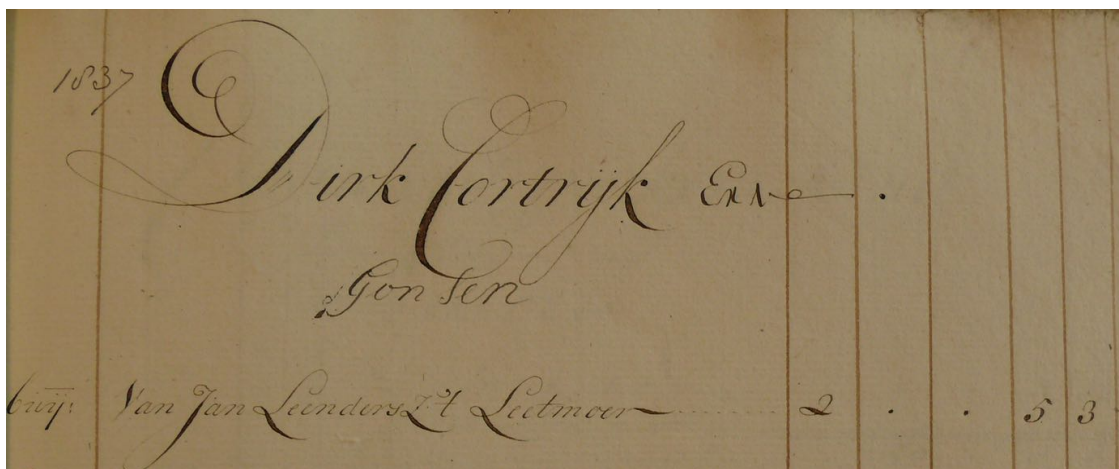 1837
Dirk Cortrijk Erve .
Gonsen
Van Jan Leenders Z. 't Leetmoer 2 . . 5 3